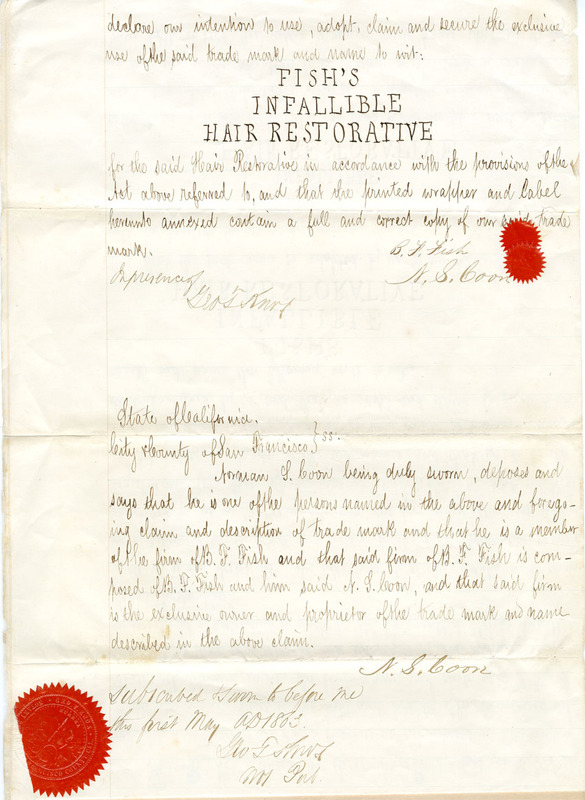 declare our intention to use, adopt, claim and secure the exclusive
use of the said trade mark and name to wit:
FISH'S
INFALLIBLE
HAIR RESTORATIVE
for the said Hair Restorative in accordance with the provisions of the
Act above referred to, and that the printed wrapper and Label
hereunto annexed contain a full and correct copy of our said trade
mark.
B. F. Fish
In presence of
N. S. Coon
Geo T Knox
State of California.
City & County of San Francisco } ss.
Norman S. Coon being duly sworn, deposes and
says that he is one of the persons named in the above and forego-
ing claim and description of trade mark and that he is a member
of the firm of B. F. Fish and that said firm of B. F. Fish is com-
posed of B. F. Fish and him said N. S. Coon, and that said firm
is the exclusive owner and proprietor of the trade mark and name
described in the above claim.
N. S. Coon
Subscribed & Sworn to before me
this first May AD 1863.
Geo T Knox
Not Pub.